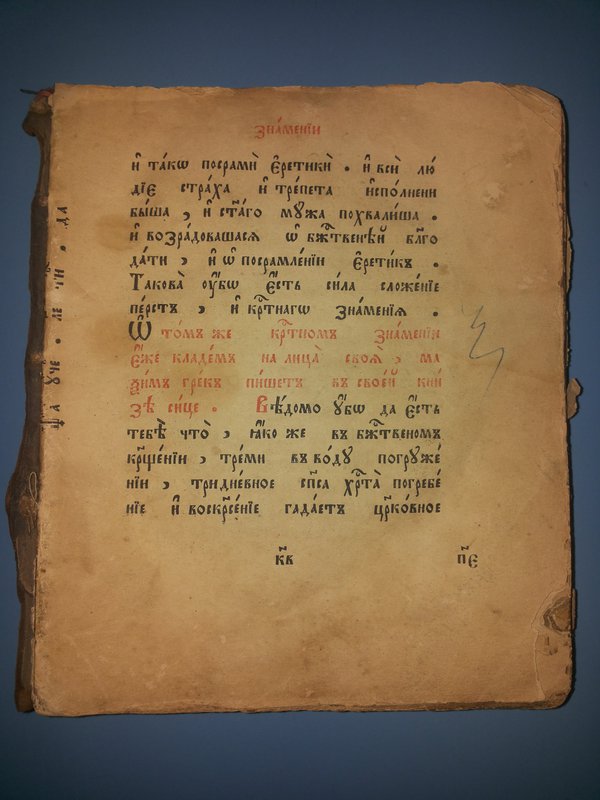 зна́менїи
и҆ та́кѡ посрамѝ є҆ретикѝ . и҆ всѝ лю́
дїе стра́ха и҆ тре́пета и҆спо́лнени
бы́ша , и҆ ст҃а́го мꙋ́жа похвали́ша .
и҆ возра́довашасѧ ѡ҆ бж҃твенѣ́й бл҃го
да́ти , и҆ ѡ҆ посрамле́нїи є҆рети́къ .
Такова̀ ᲂу҆́бѡ є҆́сть си́ла сложе́нїе
пе́рстъ , и҆ крⷭ҇тнагѡ зна́менїѧ .
Ѿ то́мъ же крⷭ҇тномъ зна́менїи
є҆́же кладе́мъ на лица̀ своѧ̀ , ма
ѯи́мъ гре́къ пи́шетъ въ свое́й кни́
зѣ си́це . Вѣ́домо ᲂу҆́бѡ да є҆́сть
тебѣ̀ что̀ , ꙗ҆́ко же въ бж҃твеномъ
крⷳ҇ще́нїи , тре́ми въ во́дꙋ погрꙋже́
нїи , тридне́вное сп҃са хрⷭ҇та̀ погребе́
нїе и҆ воскрⷭ҇е́нїе гада́етъ цр҃ко́вное
к҃в
п҃є